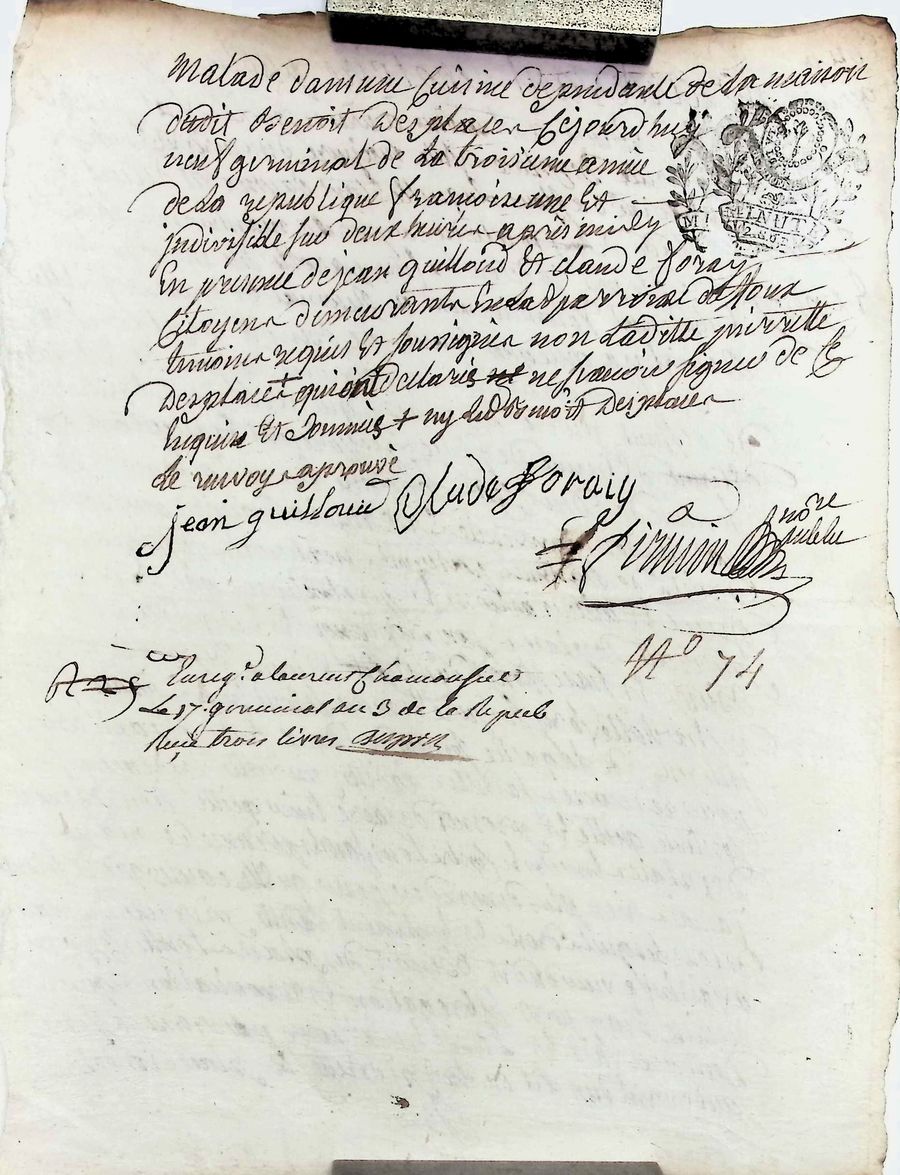 malade dans une Cuisine dependante de la maison
dudit Benoit Desplaces Cejourd'huy
neuf germinal de la troisieme année
de la republique francoise une Et
indivisible sur deux heures après midy
En presence de jean guilloud Et claude foray
Citoyens demeurants En la parroisse
temoins requis Et soussignés non Laditte pierrette
Desplace + qui ont declarés ne scavoir signer de Ce
Enquise Et Sommés + ny led. Benoit Desplaces
le renvoy approuvé
jean guilloud Claude foray
notre
public
MINUTE
No 74
Enreg. a laurent Chamousset
Le 17 germinal an 3 de la Repub
Reçu trois livres